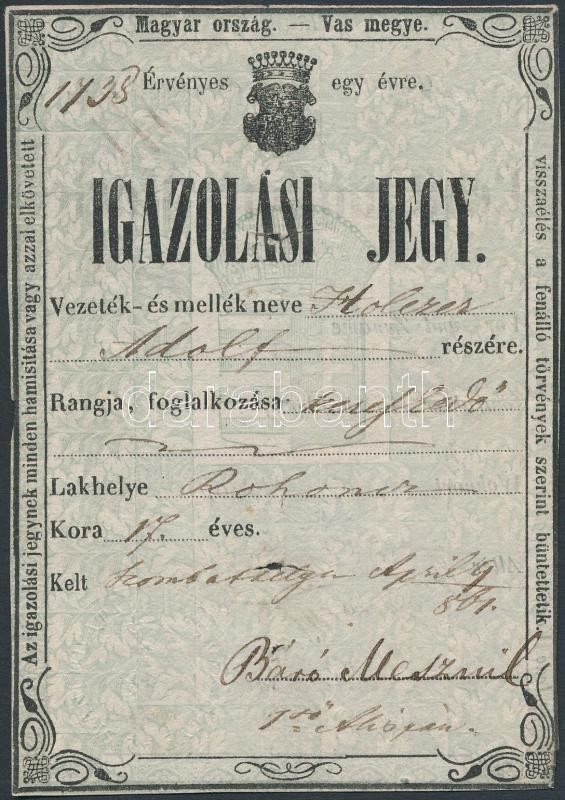 Magyar ország. — Vas megye.
1738
Érvényes egy évre.
IGAZOLÁSI JEGY.
Vezeték- és mellék neve Holczer
Adolf részére.
Rangja, foglalkozása
Lakhelye Rohoncz
Kora 17. éves.
Kelt Szombathelyen April 9
861.
Báró
Az igazolási jegynek minden hamisitása vagy azzal elkövetett
visszaélés a fenálló törvények szerint büntettetik.
darabanth